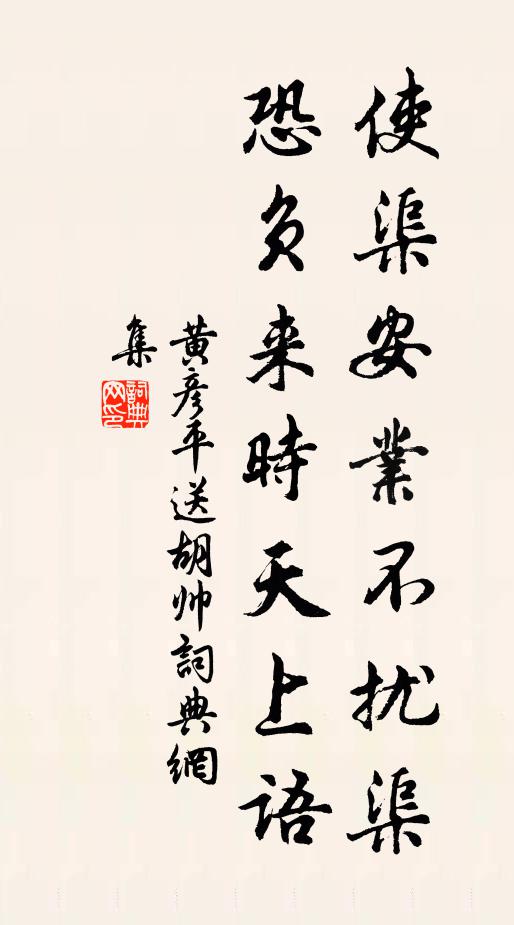 使渠安業不扰渠
恐负来時天上語
黄彦平送胡帅詞典網
集
詞典网印